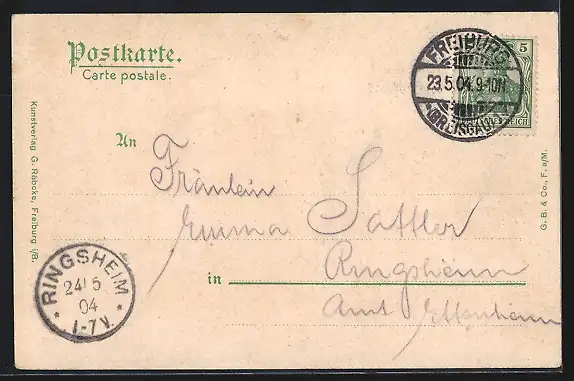 Postkarte.
Carte postale.
FREIBURG
23.5.04.9-10N.
(BREISGAU)
5
REICH
An
Fräulein
Emma Sattler
in Ringsheim
Amt Ettenheim
RINGSHEIM
24 5
04
1-7V.
Kunstverlag G. Räbcke, Freiburg i/B.
G. B. & Co., F. a/M.